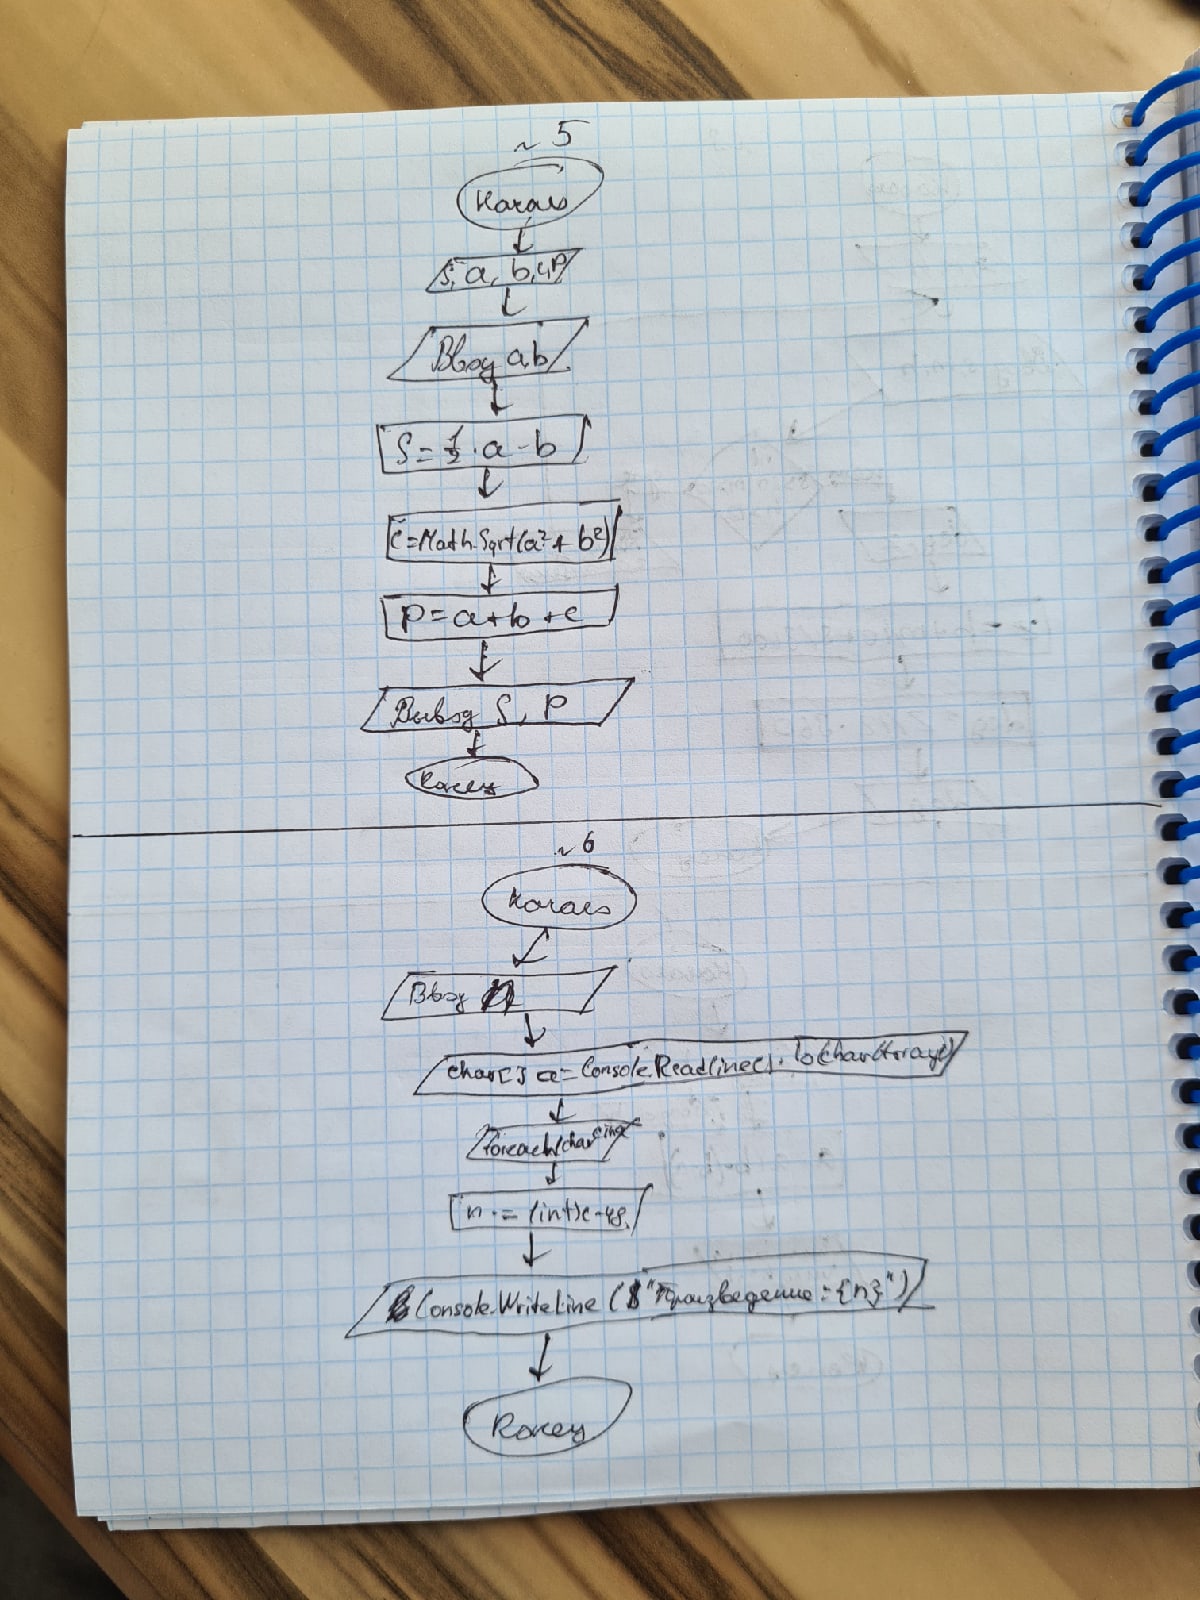 ~ 5
Начало
S, a, b, c, P
Ввод a, b
S = 1/2 · a - b
c = Math.Sqrt(a² + b²)
P = a + b + c
Вывод S, P
Конец
~ 6
Начало
Ввод n
char[] a = Console.ReadLine().ToCharArray()
foreach(char c in a
n · = (int)c - 48.
Console.WriteLine ($ "Произведение = {n}")
Конец